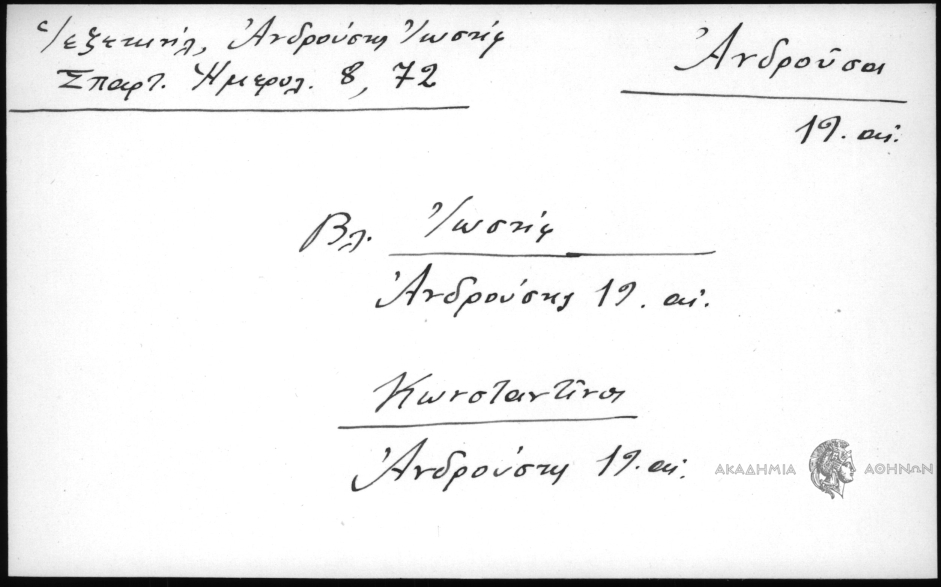 Ἱεζεκιήλ, Ἀνδρούσης Ἰωσήφ
Σπαρτ. Ἡμερολ. 8, 72
Ἀνδροῦσα
19. αἰ.
Βλ. Ἰωσήφ
Ἀνδρούσης 19. αἰ.
Κωνσταντῖνος
Ἀνδρούσης 19. αἰ.
ΑΚΑΔΗΜΙΑ ΑΘΗΝΩΝ